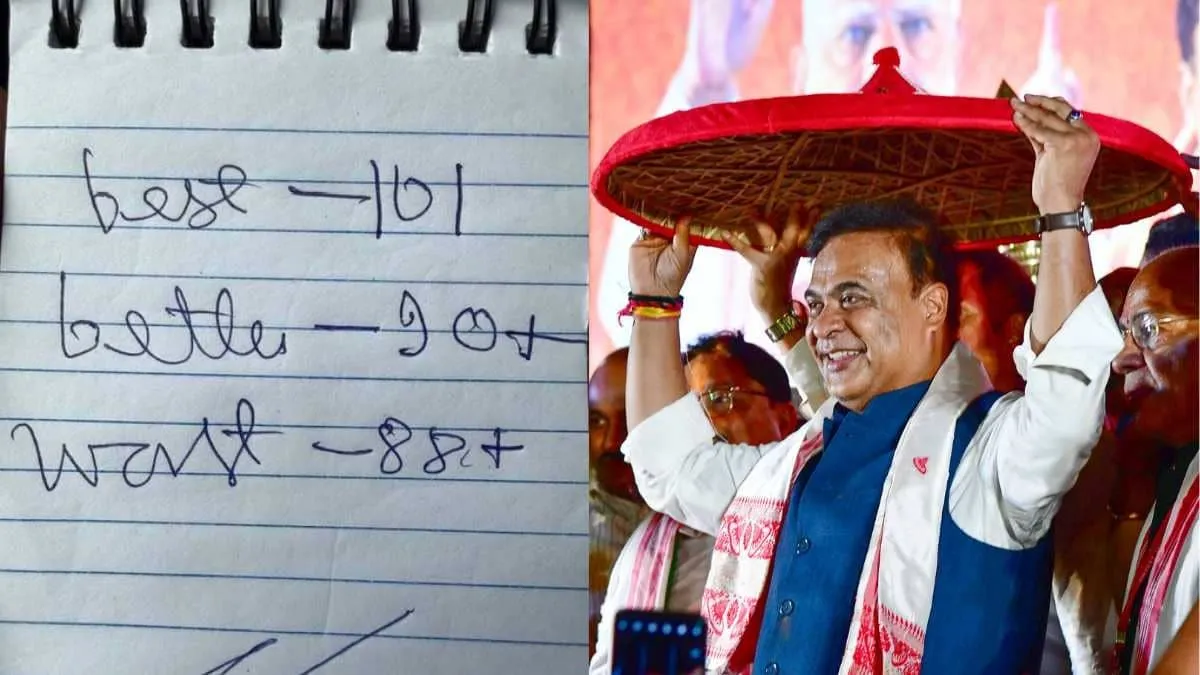 best — 101
better — 90+
worst — 88+